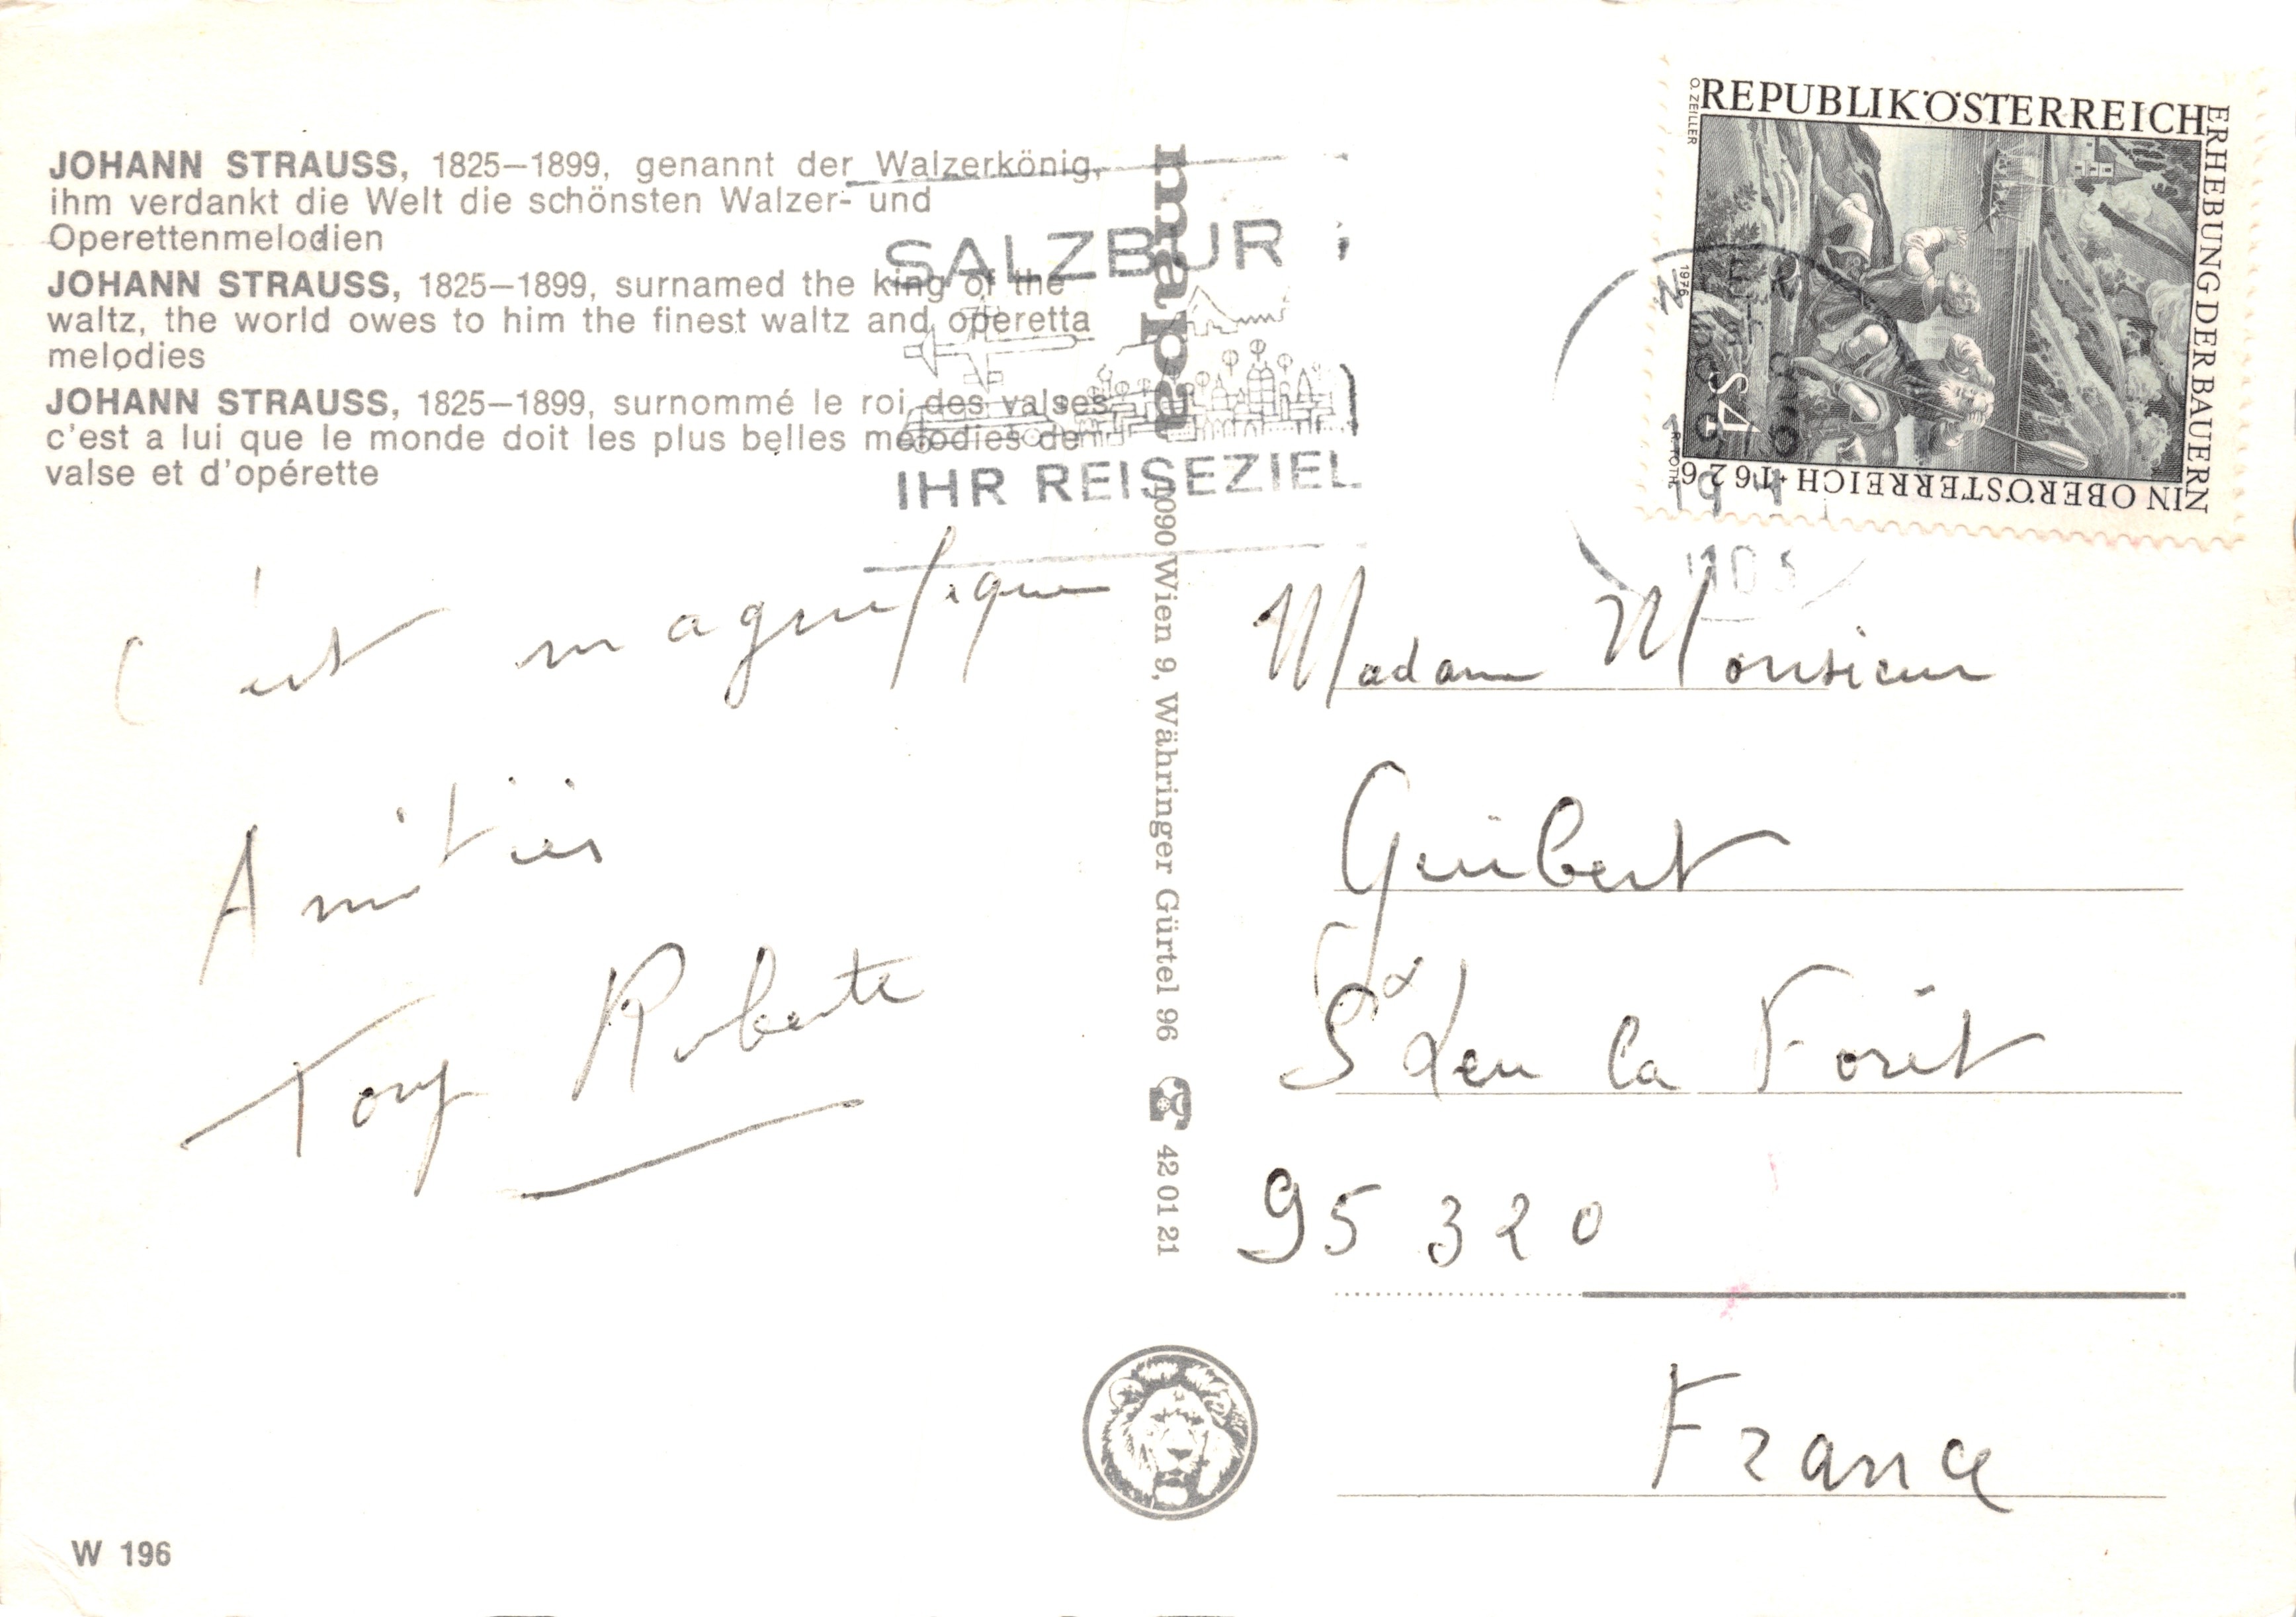 JOHANN STRAUSS, 1825–1899, genannt der Walzerkönig,
ihm verdankt die Welt die schönsten Walzer- und
Operettenmelodien
JOHANN STRAUSS, 1825–1899, surnamed the king of the
waltz, the world owes to him the finest waltz and operetta
melodies
JOHANN STRAUSS, 1825–1899, surnommé le roi des valses
c'est a lui que le monde doit les plus belles melodies de
valse et d'opérette
SALZBUR
IHR REISEZIEL
C'est magnifique
Amitiés
Tony Roberte
W 196
mapa
1090 Wien 9, Währinger Gürtel 96
42 01 21
REPUBLIK ÖSTERREICH
ERHEBUNG DER BAUERN
IN OBERÖSTERREICH · 1626
S 4
O. ZEILLER
1976
R. TOTH
Madame Monsieur
Guibert
St Leu la Forêt
95 320
France